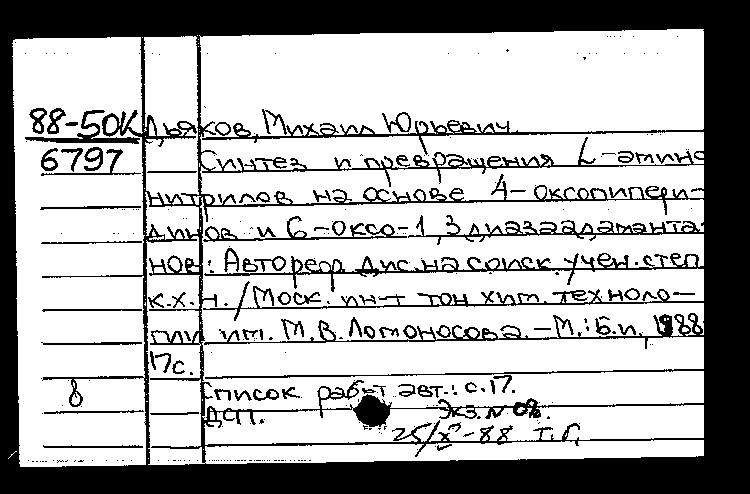 88-50К Дьяков, Михаил Юрьевич
6797 Синтез и превращения L-амино
нитрилов на основе 4-оксопипери-
динов и 6-оксо-1,3диазаадаманта-
нов: Автореф. дис. на соиск. учен. степ
к.х.н. / Моск. ин-т тон хим. техноло-
гии им. М.В. Ломоносова. -М.: Б.и., 1988
17с.
Список работ авт.: с.17.
ДСП. Экз. N
25/X-88 Т.Г.